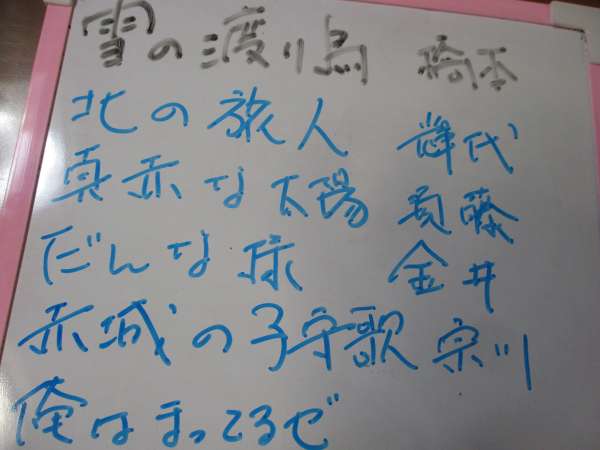 雪の渡り鳥 橋本
北の旅人
真赤な太陽 須藤
だんな様 金井
赤城の子守歌 宗川
俺はまってるぜ